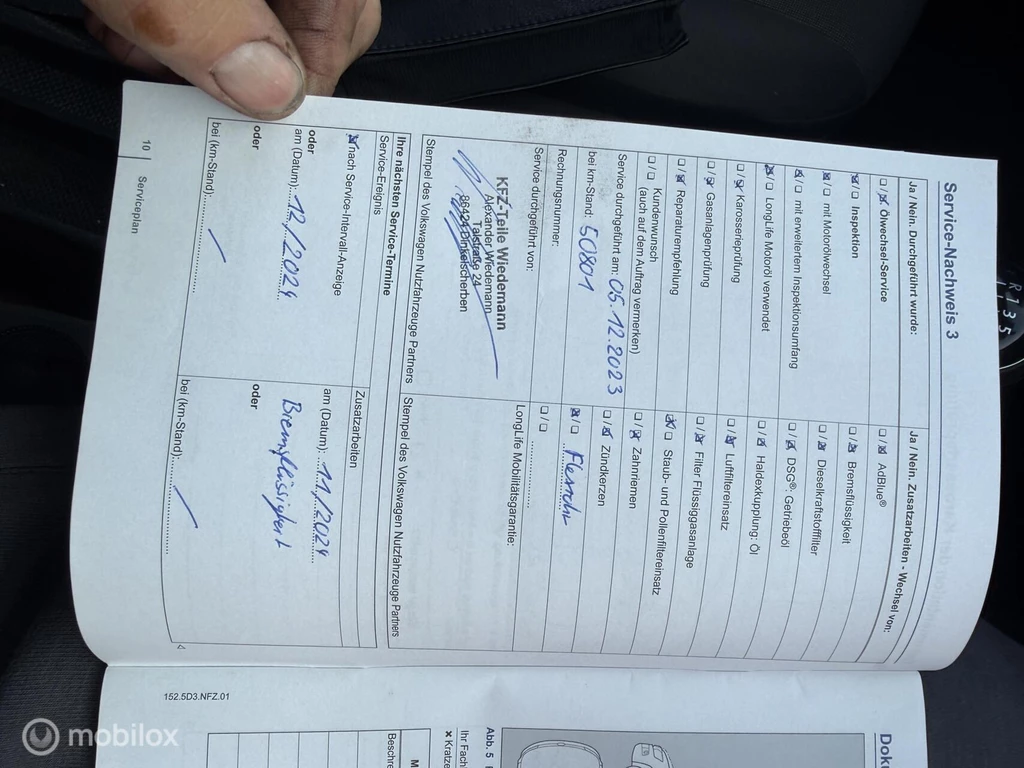 Service-Nachweis 3
Ja / Nein. Durchgeführt wurde:
☐ / ☒ Ölwechsel-Service
☒ / ☐ Inspektion
☒ / ☐ mit Motorölwechsel
☒ / ☐ mit erweitertem Inspektionsumfang
☒ / ☐ LongLife Motoröl verwendet
☐ / ☒ Karosserieprüfung
☐ / ☒ Gasanlagenprüfung
☐ / ☒ Reparaturempfehlung
☐ / ☐ Kundenwunsch
(auch auf dem Auftrag vermerken)
Service durchgeführt am: 05.12.2023
bei km-Stand: 50801
Rechnungsnummer:
Service durchgeführt von:
KFZ-Teile Wiedemann
Alexander Wiedemann
Talstraße 24
86424 Dinkelscherben
Stempel des Volkswagen Nutzfahrzeuge Partners
Ja / Nein. Zusatzarbeiten - Wechsel von:
☐ / ☒ AdBlue®
☐ / ☒ Bremsflüssigkeit
☐ / ☒ Dieselkraftstofffilter
☐ / ☒ DSG®: Getriebeöl
☐ / ☒ Haldexkupplung: Öl
☐ / ☒ Luftfiltereinsatz
☐ / ☒ Filter Flüssiggasanlage
☒ / ☐ Staub- und Pollenfiltereinsatz
☐ / ☒ Zahnriemen
☐ / ☒ Zündkerzen
☒ / ☐
☐ / ☐
LongLife Mobilitätsgarantie:
Stempel des Volkswagen Nutzfahrzeuge Partners
Ihre nächsten Service-Termine
Service-Ereignis
☒ nach Service-Intervall-Anzeige
oder
am (Datum): 12/2024
oder
bei (km-Stand):
Zusatzarbeiten
am (Datum): 11/2024
Bremsflüssigkeit
oder
bei (km-Stand):
10 Serviceplan
152.5D3.NFZ.01
Abb. 5
Ihr Fach
× Kratze
Beschre
R 1 3 5
mobilox